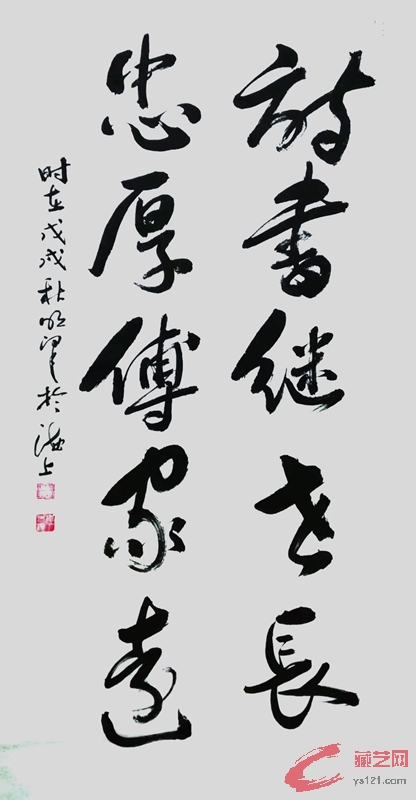 詩書继世長
忠厚傳家遠
时在戊戌秋於海上
藏艺网
ys121.com